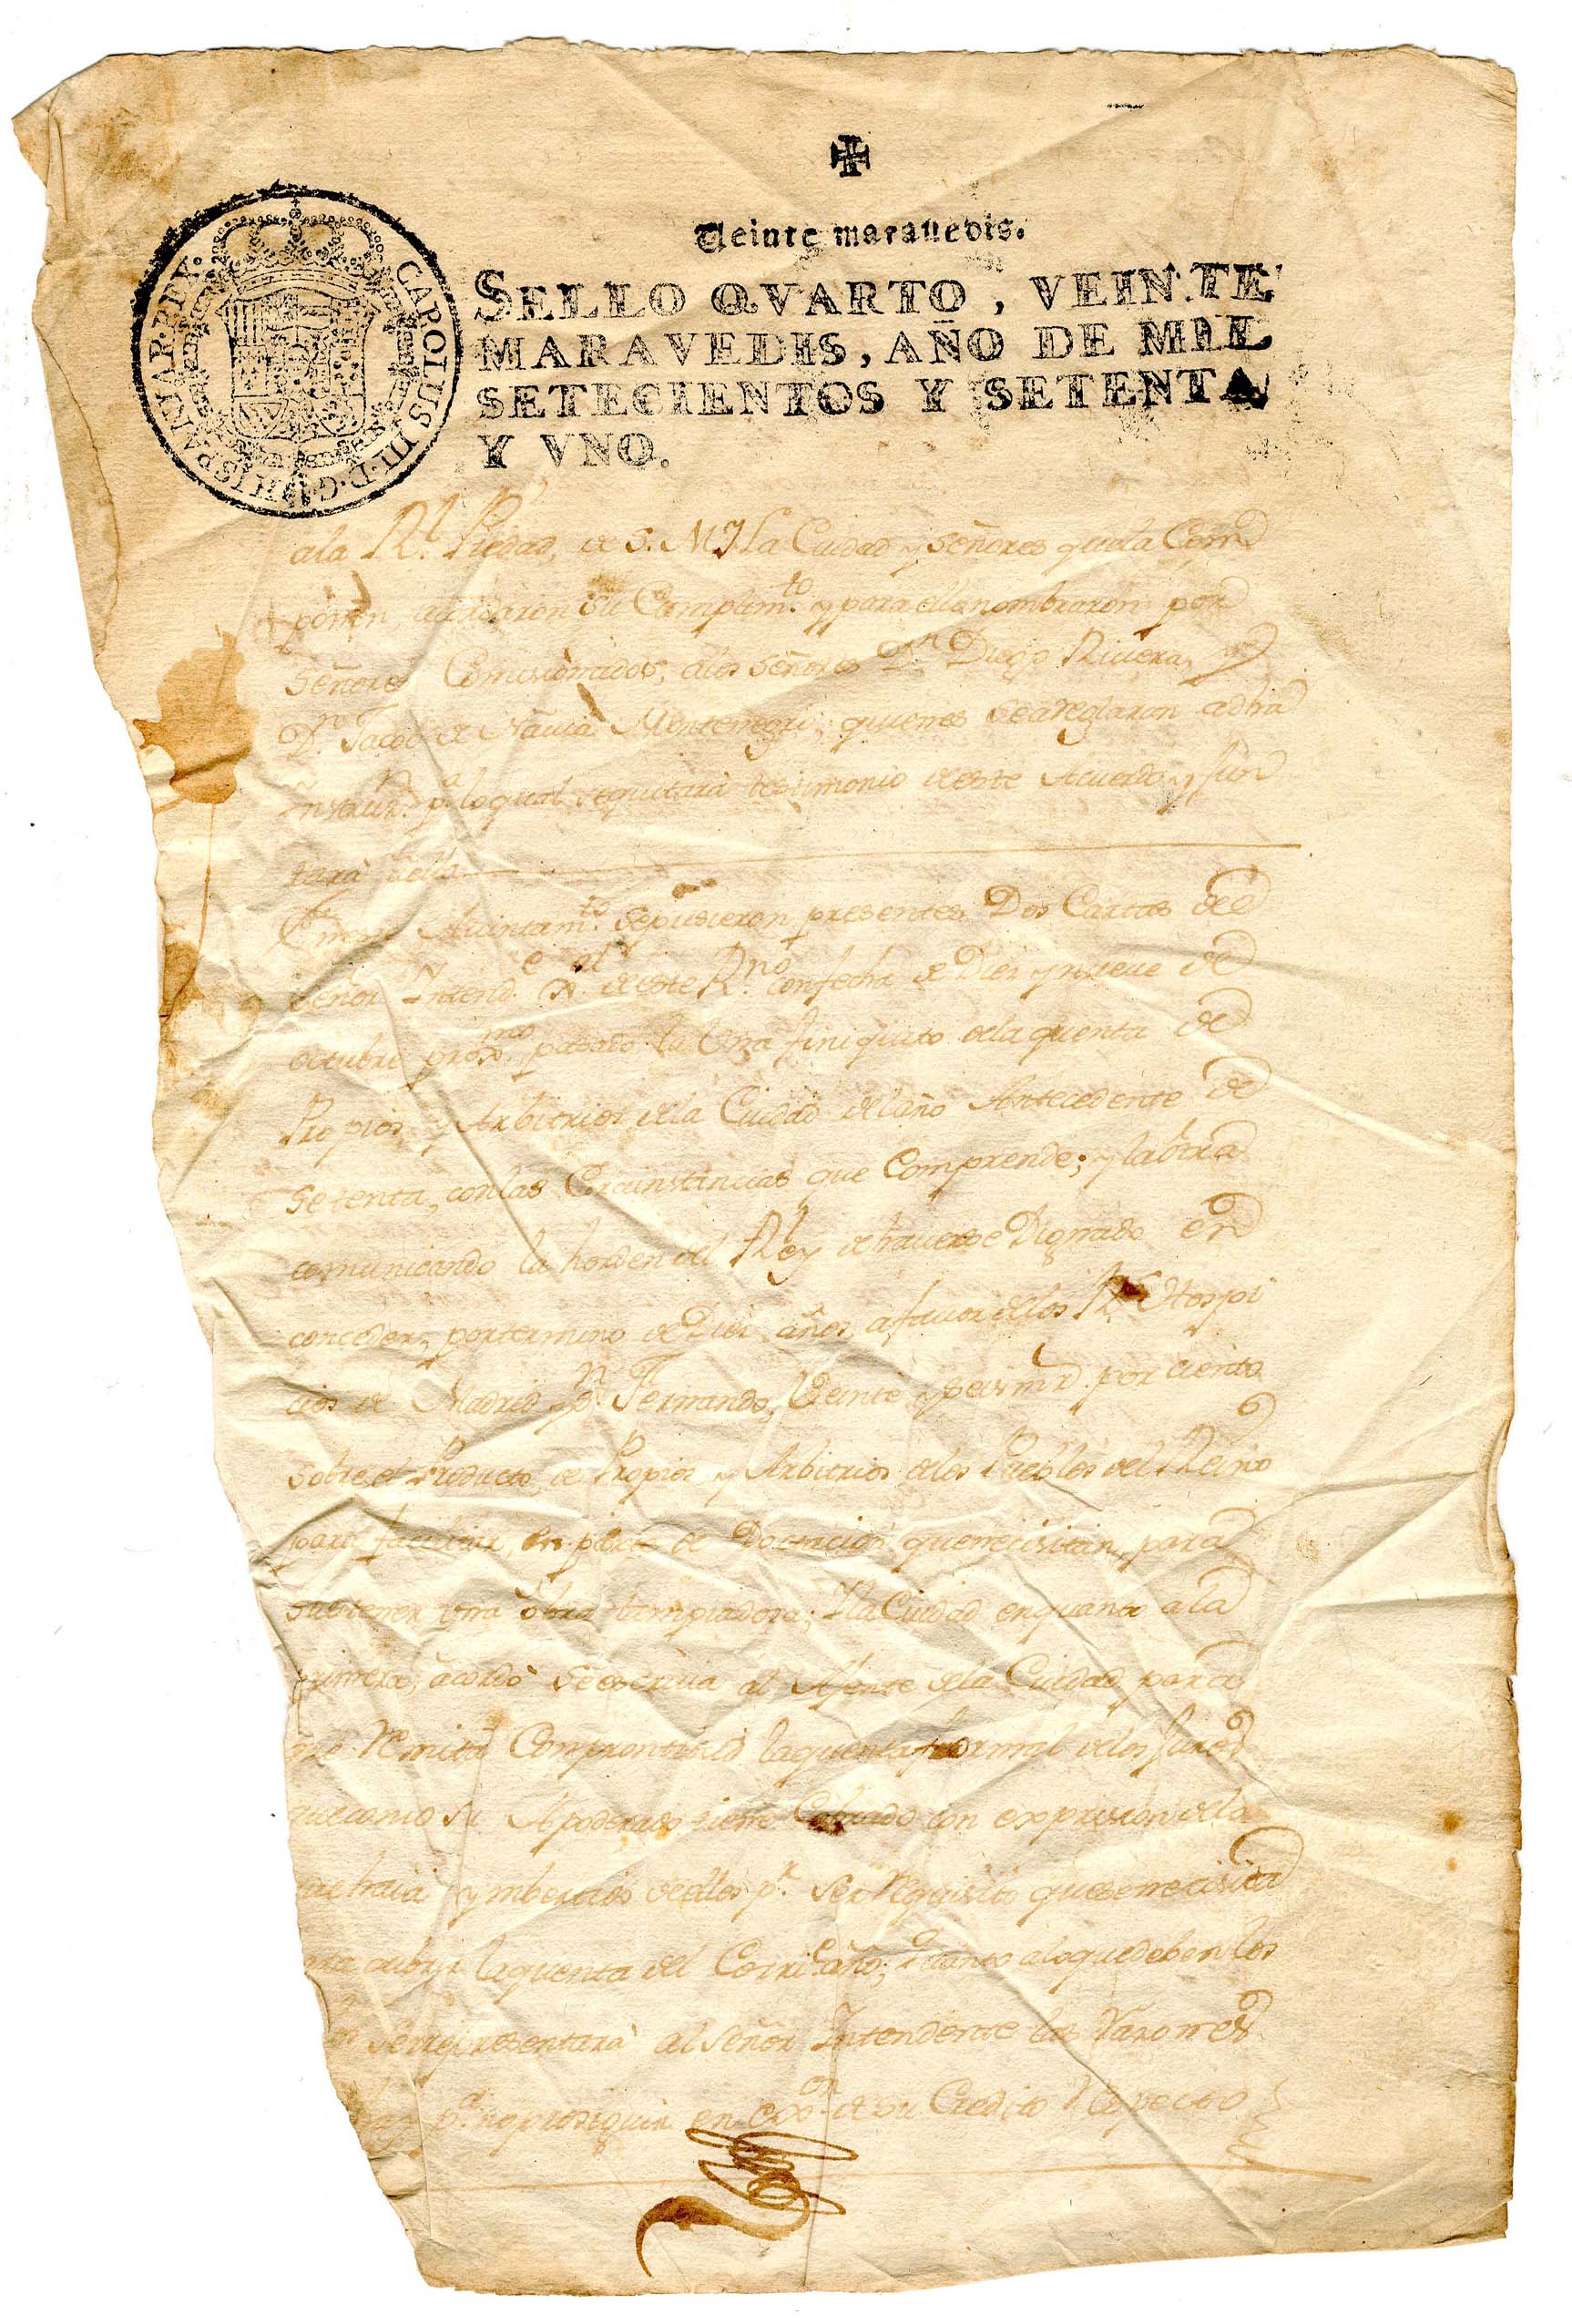 ✠
Veinte maravedis.
SELLO QVARTO, VEINTE
MARAVEDIS, AÑO DE MIL
SETECIENTOS Y SETENTA
Y VNO.
CAROLUS III·D·G·HISPANIAR·REX·
ala Rl. Piedad, de S. M. Y la Ciudad y Señores quela Com
ponen, acordaron su Complimto. y para ello nombraron por
Señores Comisionados, alos Señores Dn. Diego Riviera, y
Dn. Jacob de Navia Montenegro; quienes searreglaran a dha
Ynstrucn. pa. loqual sequitará testimonio deeste Acuerdo, y Jun
tará
Eneste Aiuntamto. sepusieron presentes Dos Cartas de
Señor Yntendte. Gl. deeste Rno. confecha de Diez y nueve de
octubre proxmo. pasado: la Una finiquito dela quenta de
Propios y Arbitrios dela Ciudad delaño Antecedente de
Setenta, conlas Circunstancias que Comprende; y laotra
comunicando la horden del Rey dehaverse Dignado en
conceder, portermino de Diez años, afavor delos Rs. Hospi
cios de Madrid y Sn. Fernando, Veinte y seis mrs. por ciento
sobre el Producto, de Propios y Arbitrios delos Pueblos del Reino
para facilitar, en parte de Dotacion quenecisitan, para
subtener una obra tampiadosa; Yla Ciudad enquanto ala
primera, acordó seescriva al Ajente dela Ciudad, para
que Remita Comprontitud laquenta formal delos Juros
quecomo su Apoderado tiene Cobrado con expresion dela
deellos pr. ser Requisito quesenecisita
para cubrir laquenta del Corrte. año; quanto aloquedeben los
serrepresentará al Señor Yntendente las Razones
pa. noproseguir en exon. de su Credito Respecto